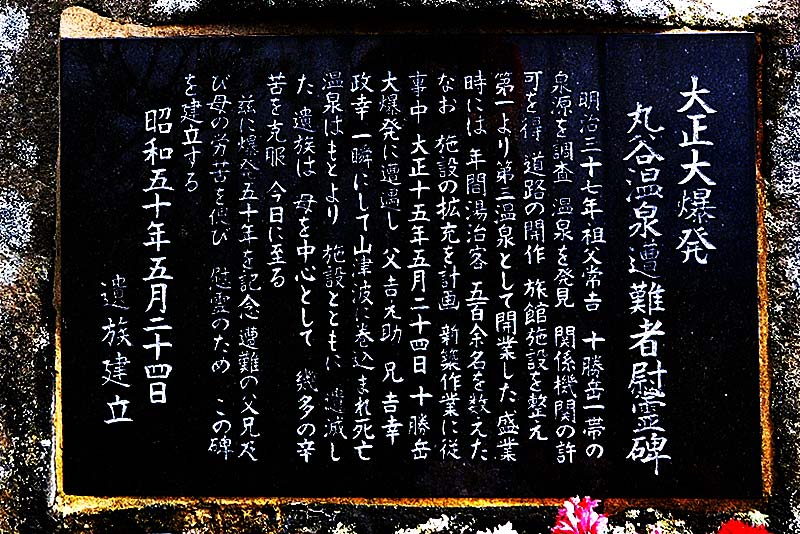 大正大爆発
丸谷温泉遭難者慰霊碑
明治三十七年祖父常吉 十勝岳一帯の
泉源を調査 温泉を発見 関係機関の許
可を得 道路の開作 旅館施設を整え
第一より第三温泉として開業した 盛業
時には 年間湯治客 五百余名を数えた
なお 施設の拡充を計画 新築作業に従
事中 大正十五年五月二十四日 十勝岳
大爆発に遭遇し 父吉之助 兄吉幸
政幸 一瞬にして山津波に巻込まれ死亡
温泉はもとより 施設とともに 遺滅し
た 遺族は 母を中心として 幾多の辛
苦を克服 今日に至る
茲に爆発五十年を記念 遭難の父兄及
び母の労苦を偲び 慰霊のため この碑
を建立する
昭和五十年五月二十四日
遺族建立